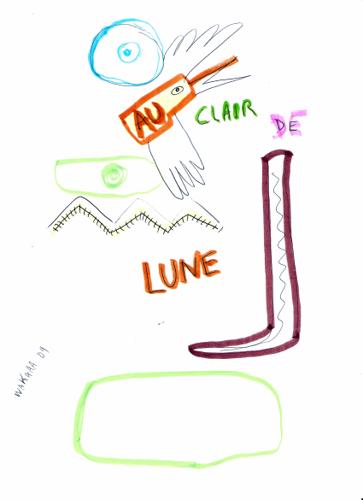 AU
CLAIR
DE
LUNE
WAKAAA 09